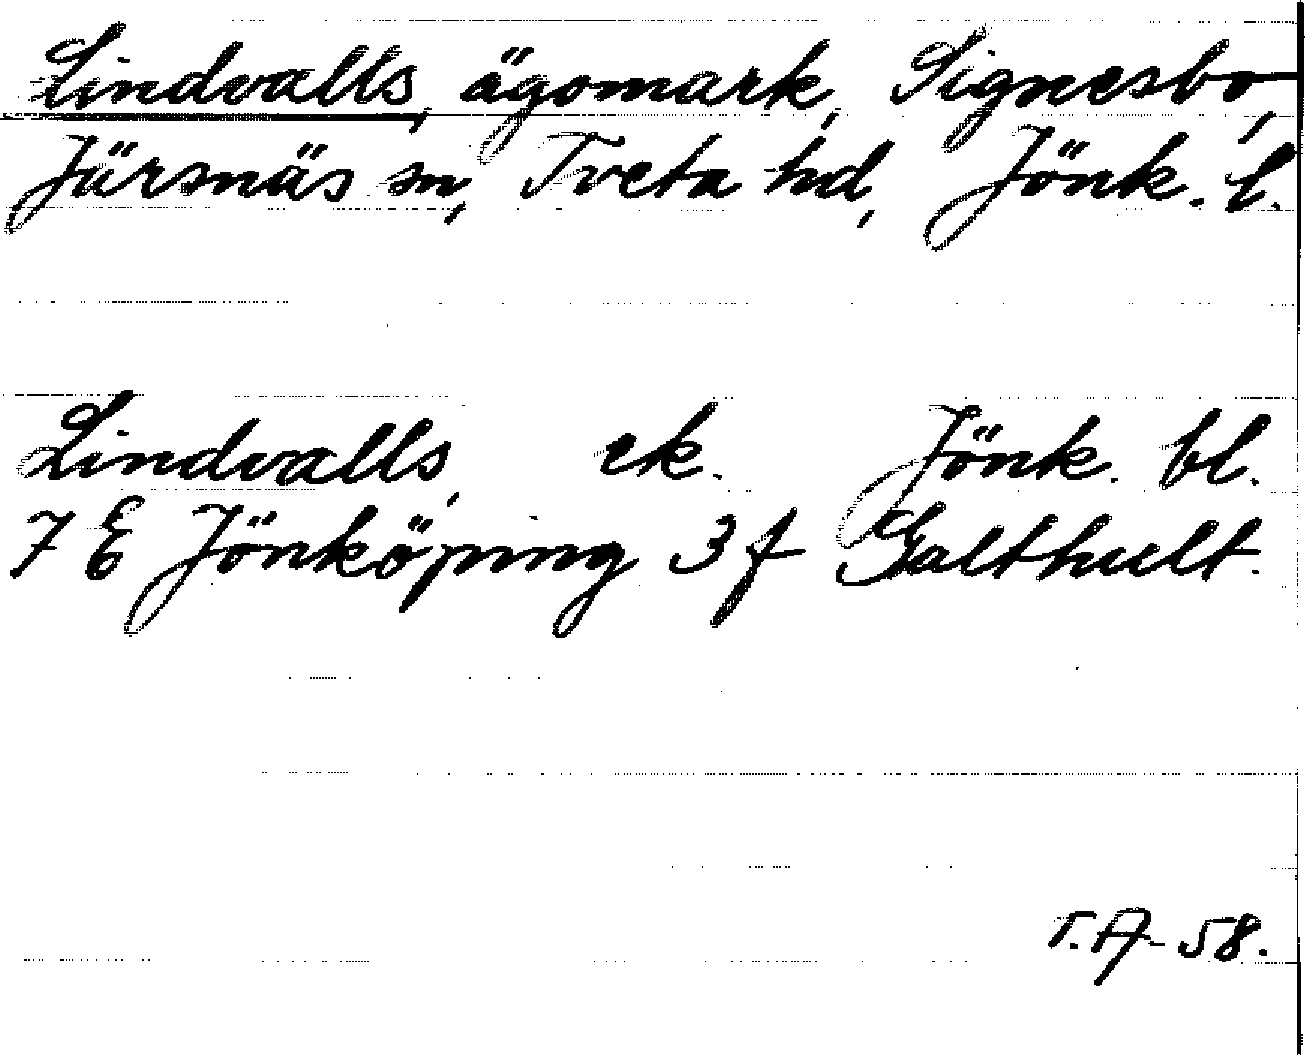 Lindvalls, ägomark, Signesbo,
Järsnäs sn, Tveta hd, Jönk. l.
Lindvalls, ek. Jönk. bl.
7 E Jönköping 3 f Galthult.
T.A-58.